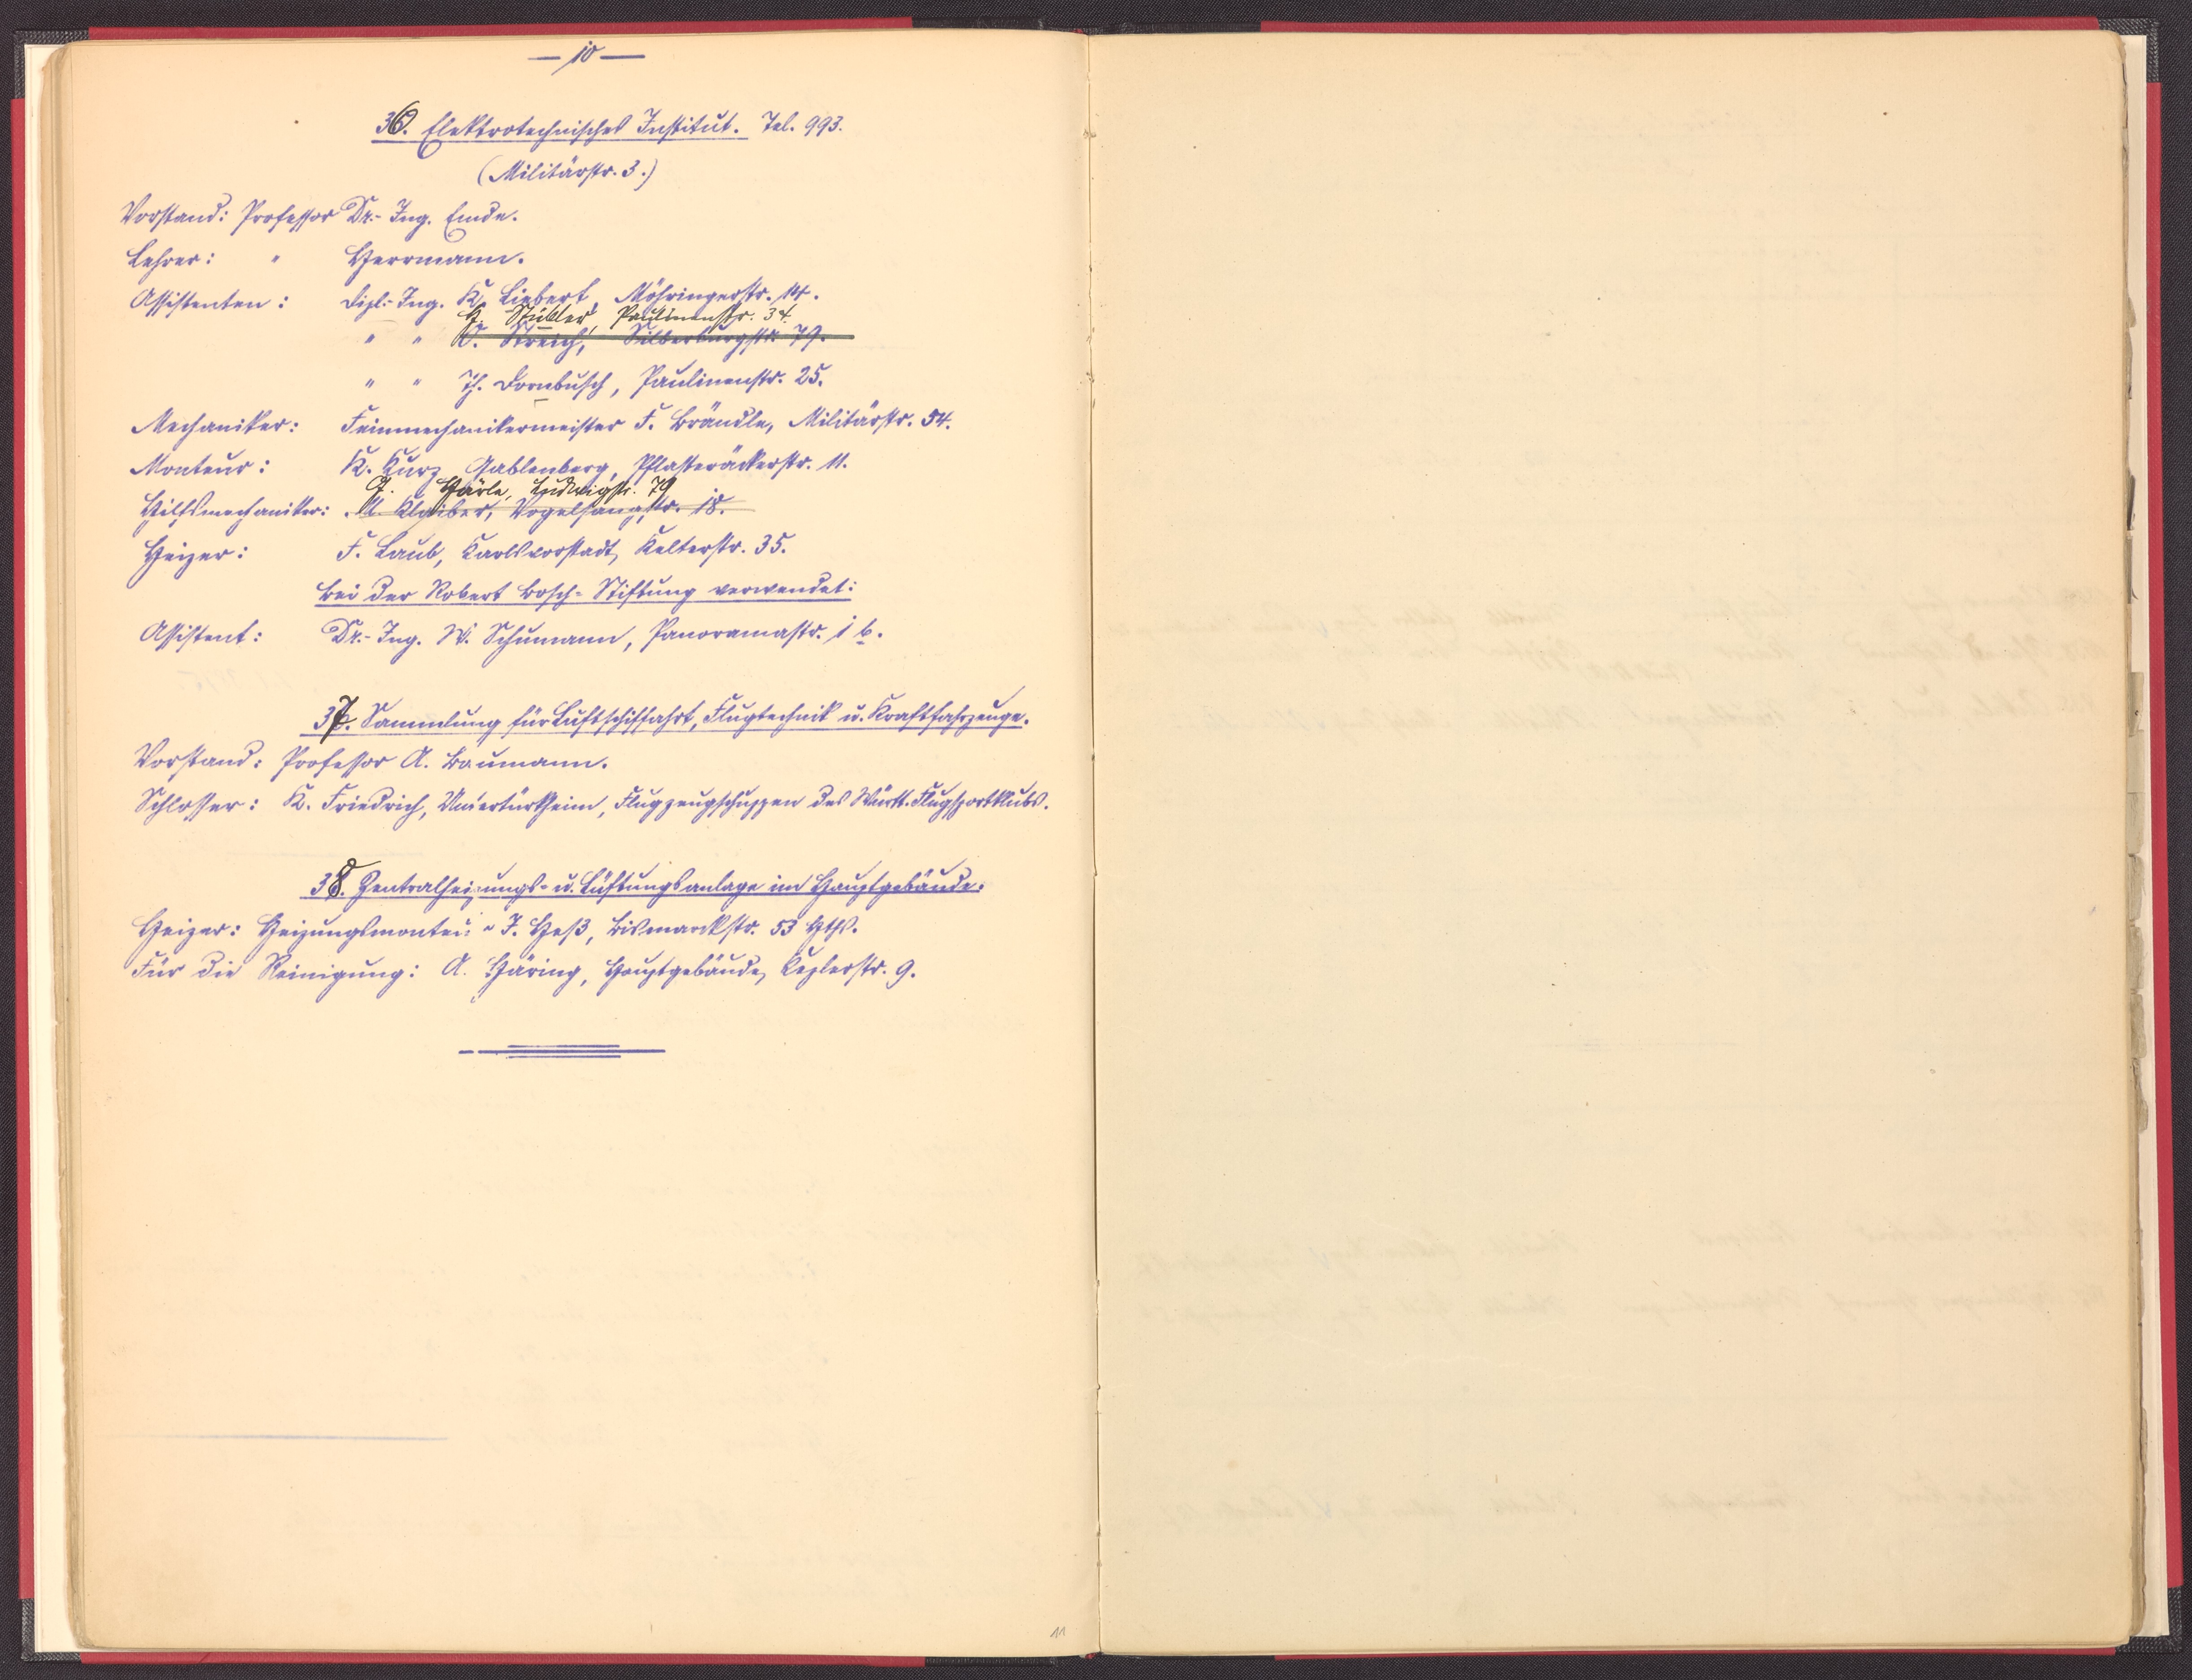 — 10 —
36. Elektrotechnisches Institut. Tel. 993.
(Militärstr. 3.)
Vorstand: Professor Dr.-Ing. Emde.
Lehrer: " Herrmann.
Assistenten: Dipl.-Ing. K. Liebert, Möhringerstr. 14.
G. Stübler, Paulinenstr. 34.
" " O. Streich, Silberburgstr. 79.
" " Th. Dornbusch, Paulinenstr. 25.
Mechaniker: Feinmechanikermeister F. Brändle, Militärstr. 54.
Monteur: K. Kurz, Gablenberg, Pflasteräckerstr. 11.
Härle, Ludwigstr. 79
Hilfsmechaniker: A. Klaiber, Vogelsangstr. 18.
Heizer: F. Laub, Karlsvorstadt, Kelterstr. 35.
Bei der Robert Bosch-Stiftung verwendet:
Assistent: Dr.-Ing. W. Schumann, Panoramastr. 1 b.
37. Sammlung für Luftschiffahrt, Flugtechnik u. Kraftfahrzeuge.
Vorstand: Professor A. Baumann.
Schlosser: K. Friedrich, Untertürkheim, Flugzeugschuppen des Württ. Flugsportklubs.
38. Zentralheizungs- u. Lüftungsanlage im Hauptgebäude.
Heizer: Heizungsmonteur J. Heß, Bismarckstr. 53 Hths.
Für die Reinigung: A. Häring, Hauptgebäude, Keplerstr. 9.
11